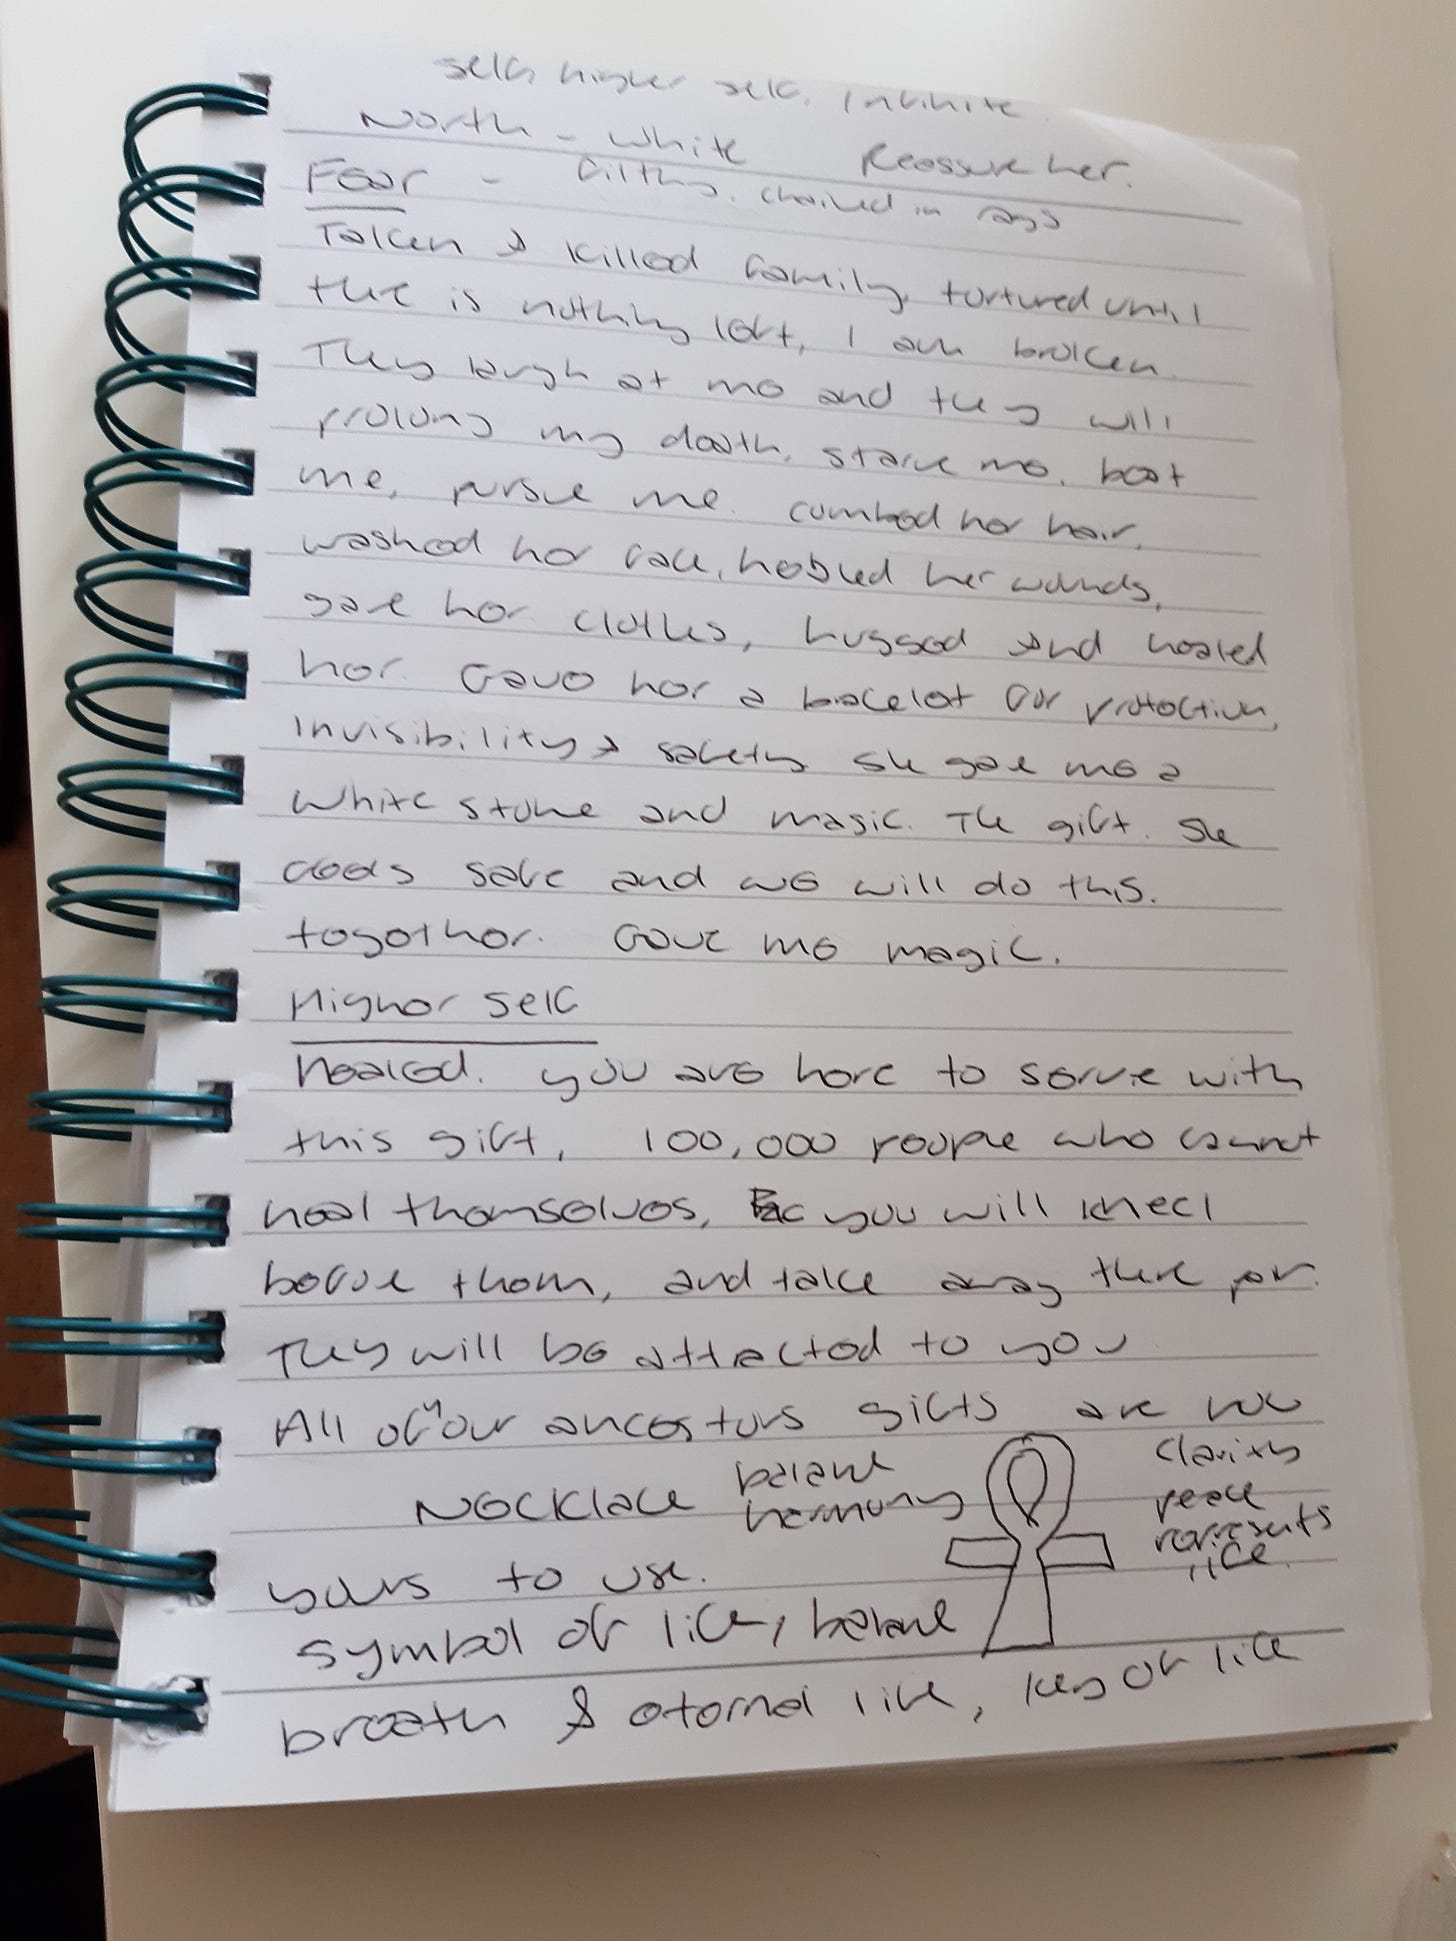 self, higher self, Infinite
North - white Reassure her.
Fear - filthy, chained in rags
Taken & killed family, tortured until
there is nothing left, I am broken
They laugh at me and they will
prolong my death, starve me, beat
me, pursue me. combed her hair,
washed her face, heled her wounds,
gave her clothes, hugged and healed
her. Gave her a bracelet for protection,
invisibility & safety she gave me a
white stone and magic. The gift. She
feels safe and we will do this.
together. Gave me magic.
Higher Self
healed. you are here to serve with
this gift, 100,000 people who cannot
heal themselves, you will kneel
before them, and take away there
They will be attracted to you
All of your ancestors gifts are now
Necklace balance harmony
clarity
peace
represents
life.
yours to use.
symbol of life, balance
breath & eternal life, key of life